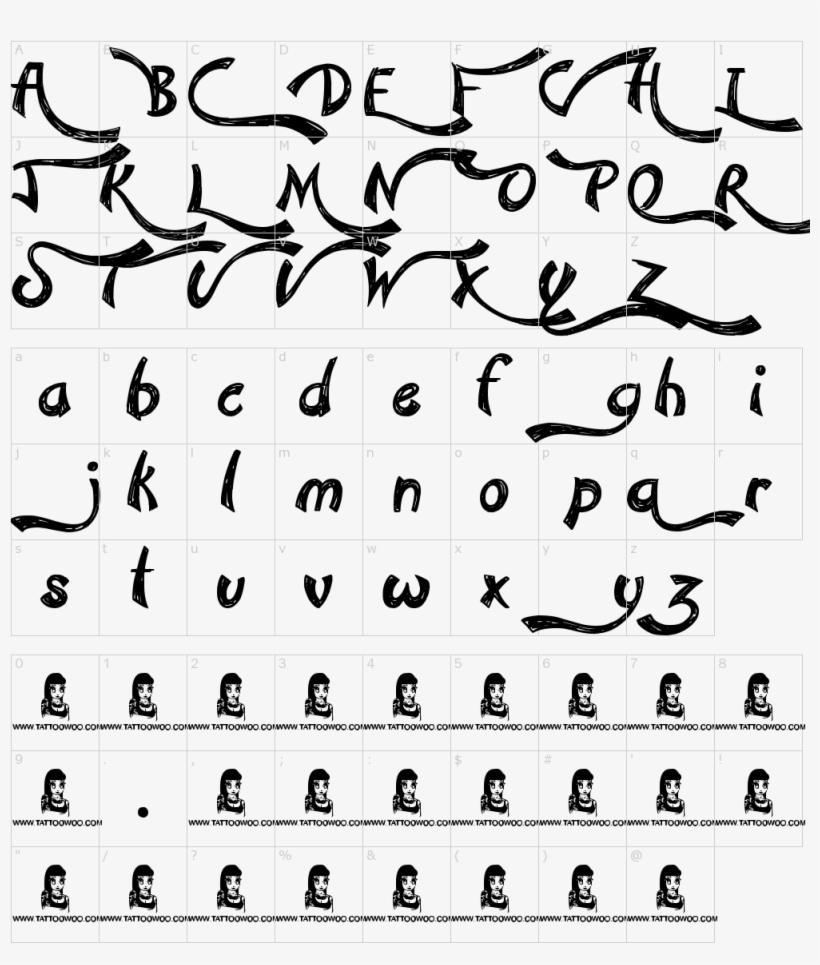 A B C D E F G H I
A B C D E F G H I
J K L M N O P Q R
J K L M N O P Q R
S T U V W X Y Z
S T U V W X Y Z
a b c d e f g h i
a b c d e f g h i
j k l m n o p q r
j k l m n o p q r
s t u v w x y z
s t u v w x y z
0 1 2 3 4 5 6 7 8
WWW.TATTOOWOO.COM WWW.TATTOOWOO.COM WWW.TATTOOWOO.COM WWW.TATTOOWOO.COM WWW.TATTOOWOO.COM WWW.TATTOOWOO.COM WWW.TATTOOWOO.COM WWW.TATTOOWOO.COM WWW.TATTOOWOO.COM
9 . , ; : $ # ' !
WWW.TATTOOWOO.COM . WWW.TATTOOWOO.COM WWW.TATTOOWOO.COM WWW.TATTOOWOO.COM WWW.TATTOOWOO.COM WWW.TATTOOWOO.COM WWW.TATTOOWOO.COM WWW.TATTOOWOO.COM
" / ? % & ( ) @
WWW.TATTOOWOO.COM WWW.TATTOOWOO.COM WWW.TATTOOWOO.COM WWW.TATTOOWOO.COM WWW.TATTOOWOO.COM WWW.TATTOOWOO.COM WWW.TATTOOWOO.COM WWW.TATTOOWOO.COM